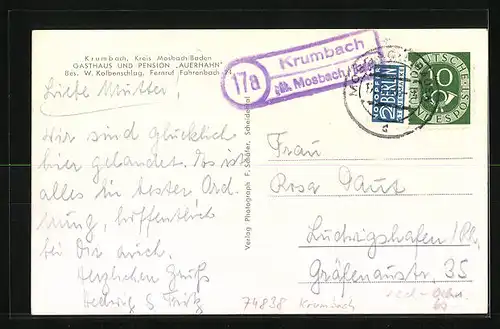 Krumbach, Kreis Mosbach/Baden
GASTHAUS UND PENSION „AUERHAHN"
Bes. W. Kolbenschlag, Fernruf Fahrenbach
Liebe Mutter!
Wir sind glücklich
hier gelandet. Es ist
alles in bester Ord
nung, hoffentlich
bei Dir auch.
Herzlichen Gruß
Hedwig & Fritz
Verlag Photograph F. Schäfer, Scheidental
17a
Krumbach
üb. Mosbach
NOTOPFER
2 BERLIN
STEUERMARKE
DEUTSCHE
10
BUNDESPOST
Frau
Rosa Gaut
Ludwigshafen/Rh.
Gräfenaustr. 35
74838 Krumbach